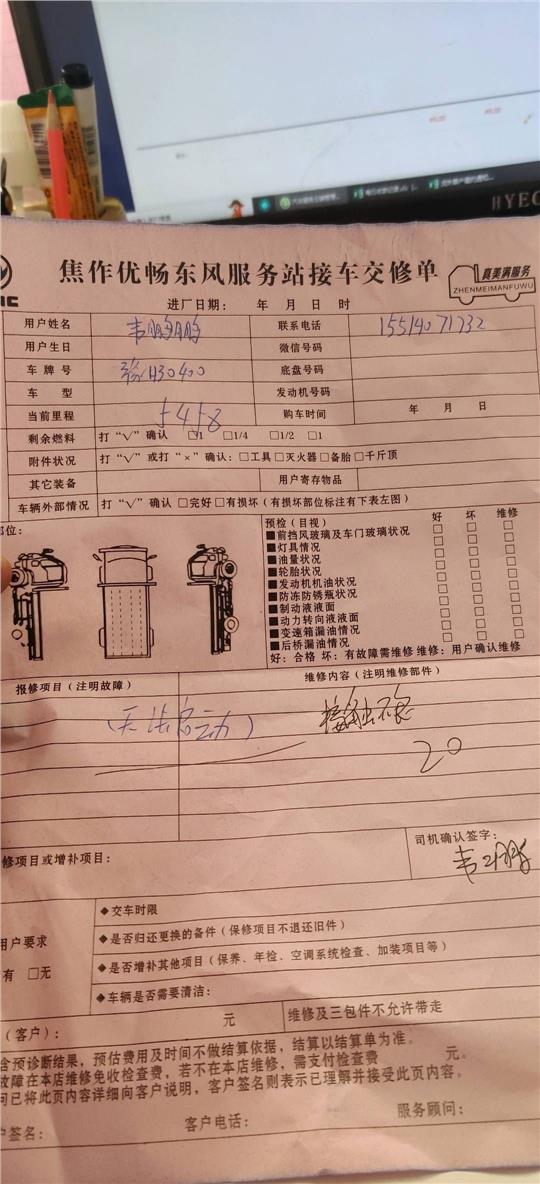 HYEC
焦作优畅东风服务站接车交修单
真美满服务
ZHENMEIMANFUWU
进厂日期： 年 月 日 时
用户姓名 韦鹏鹏 联系电话 15514071732
用户生日 微信号码
车牌号 H30400 底盘号码
车 型 发动机号码
当前里程 5458 购车时间 年 月 日
剩余燃料 打“√”确认 □1 □1/4 □1/2 □1
附件状况 打“√”或打“×”确认：□工具 □灭火器 □备胎 □千斤顶
其它装备 用户寄存物品
车辆外部情况 打“√”确认 □完好 □有损坏（有损坏部位标注有下表左图）
部位：
预检（目视） 好 坏 维修
■前挡风玻璃及车门玻璃状况 □ □ □
■灯具情况 □ □ □
■油量状况 □ □ □
■轮胎状况 □ □ □
■发动机机油状况 □ □ □
■防冻防锈瓶状况 □ □ □
■制动液液面 □ □ □
■动力转向液液面 □ □ □
■变速箱漏油情况 □ □ □
■后桥漏油情况 □ □ □
好：合格 坏：有故障需维修 维修：用户确认维修
报修项目（注明故障） 维修内容（注明维修部件）
（无法启动） 接触不良
20
修项目或增补项目：
司机确认签字：
韦鹏鹏
用户要求
有 □无
◆交车时限
◆是否归还更换的备件（保修项目不退还旧件）
◆是否增补其他项目（保养、年检、空调系统检查、加装项目等）
◆车辆是否需要清洁：
元 维修及三包件不允许带走
（客户）：
含预诊断结果，预估费用及时间不做结算依据，结算以结算单为准。
故障在本店维修免收检查费，若不在本店维修，需支付检查费 元。
问已将此页内容详细向客户说明，客户签名则表示已理解并接受此页内容。
户签名： 客户电话： 服务顾问：